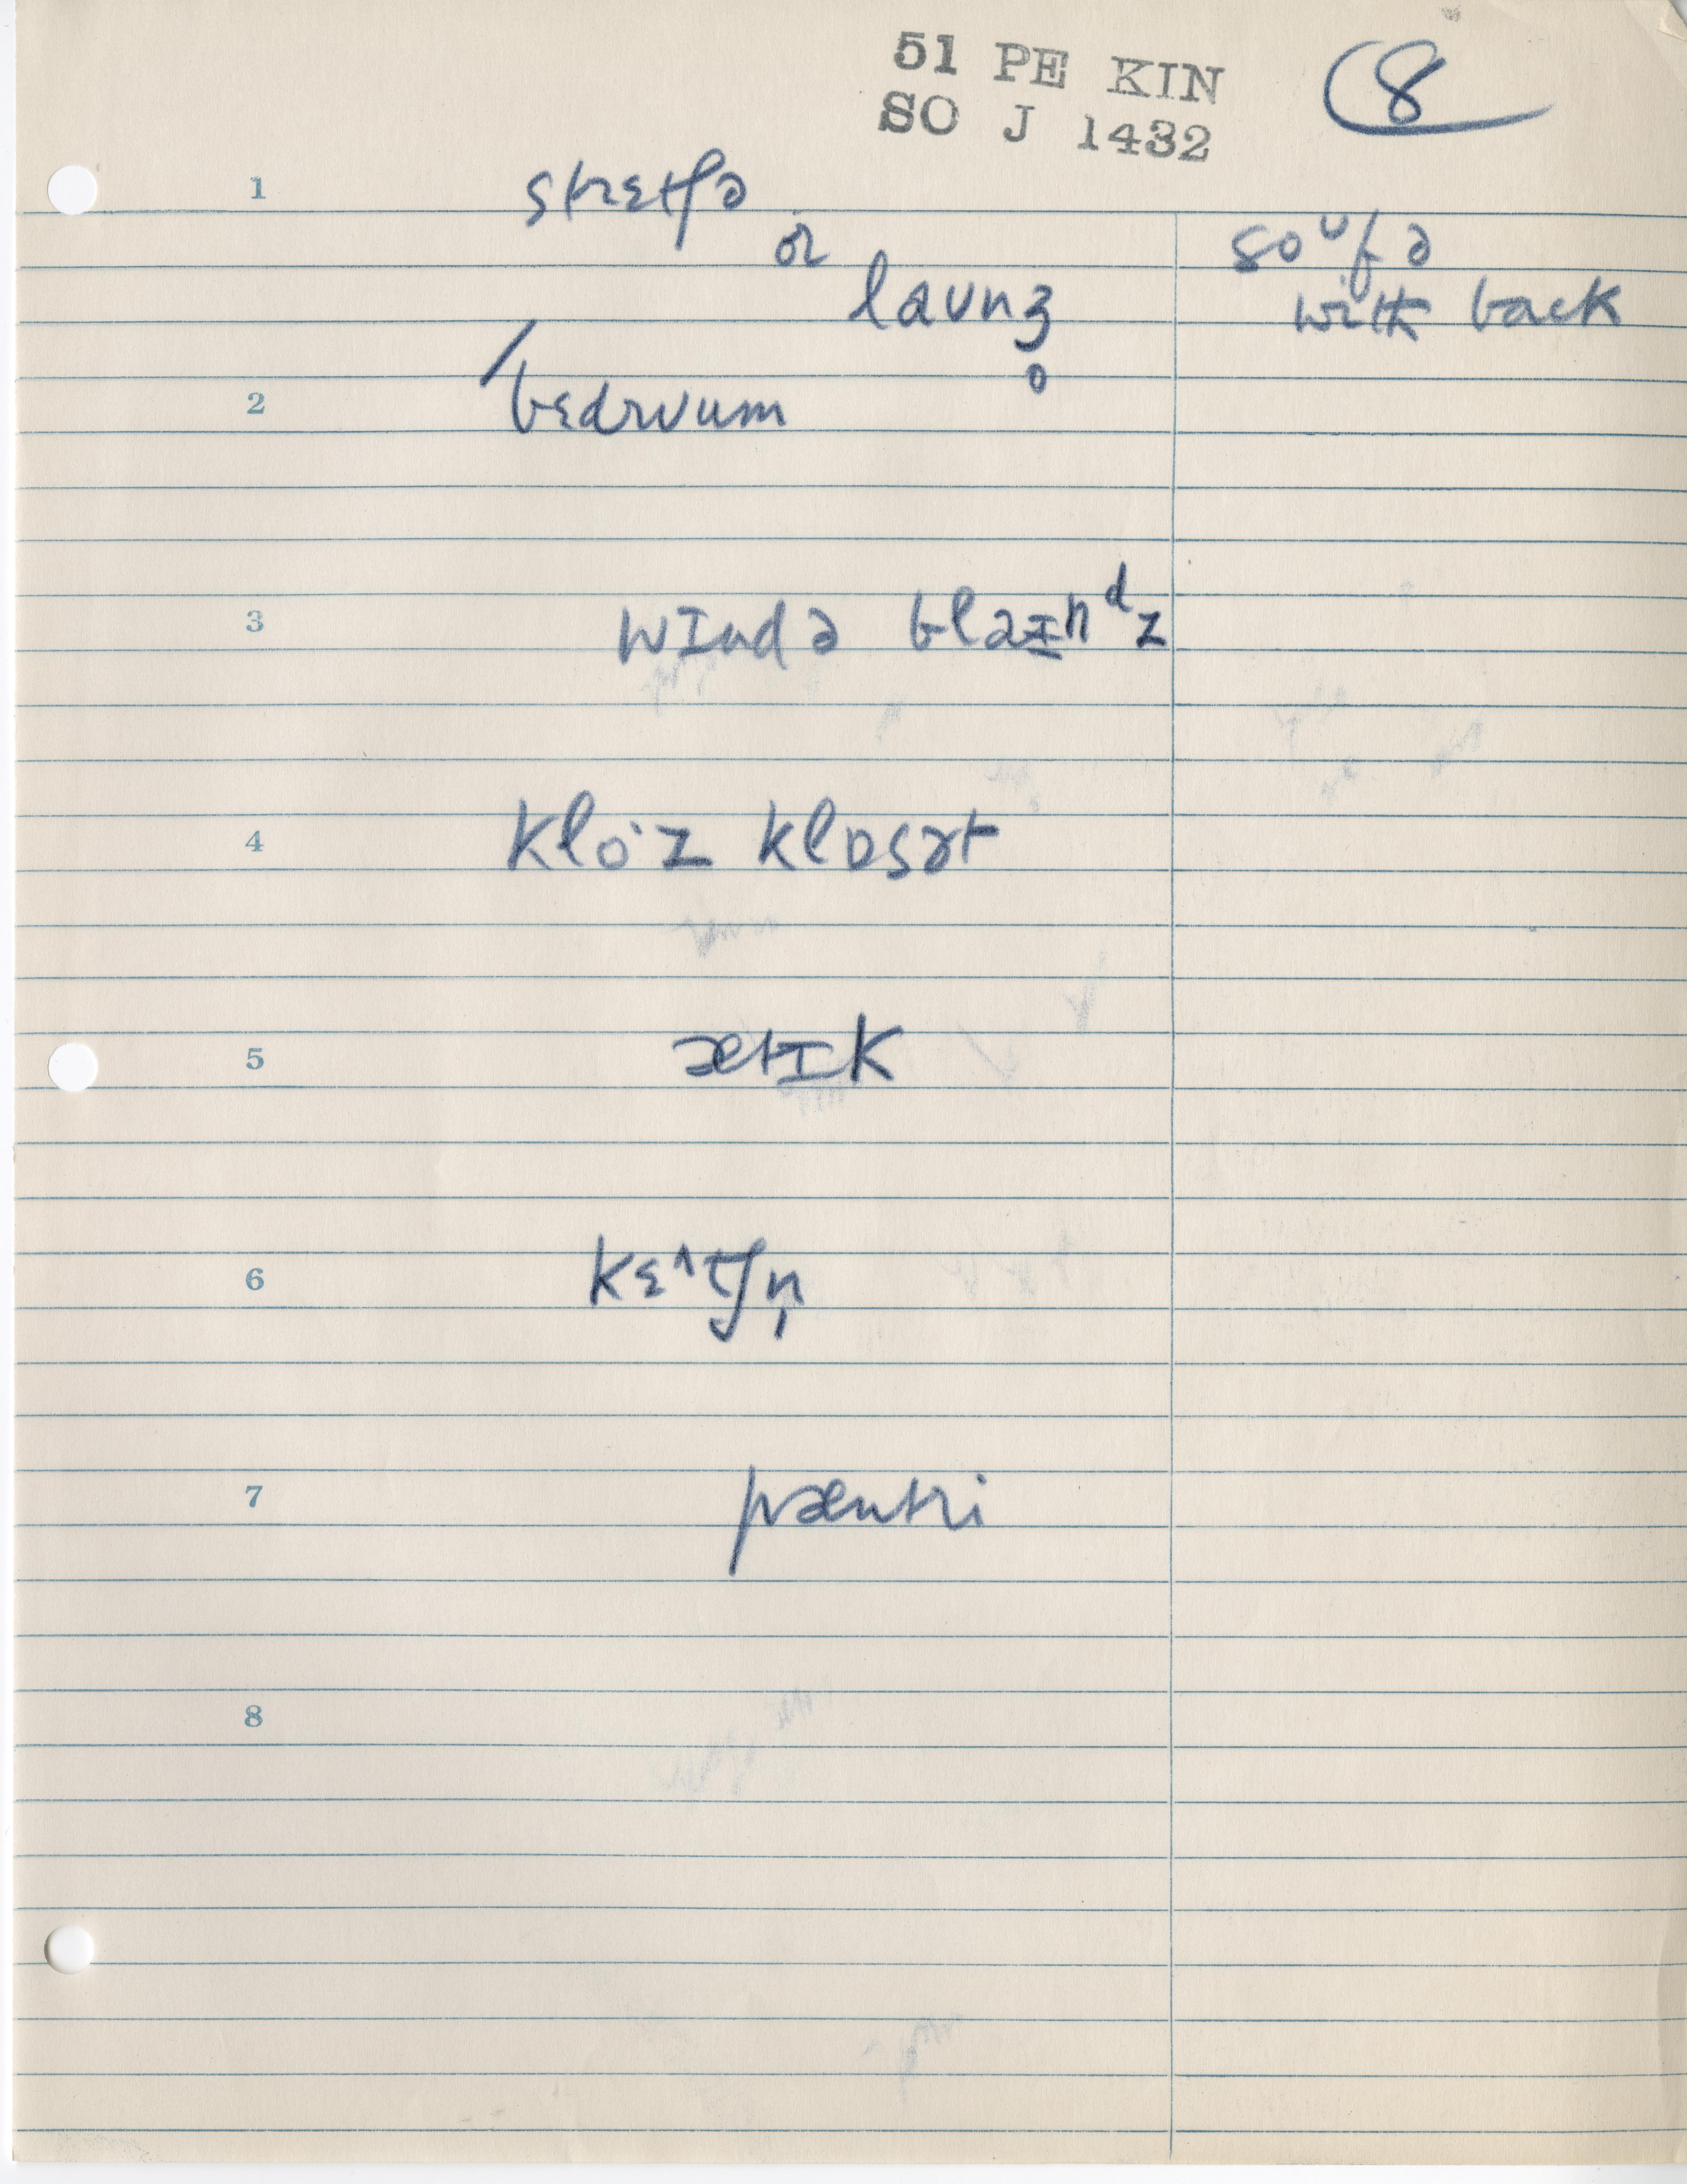 51 PE KIN
SO J 1432
8
1 strɛtʃə
or
laʊnʒ̥
soᵘfə
with back
2 /bɛdrʊum
3 wɪndə blaɪnᵈz
4 kloˑz klɒsət
5 ætɪk
6 kɛ^tʃn̩
7 pæntri
8